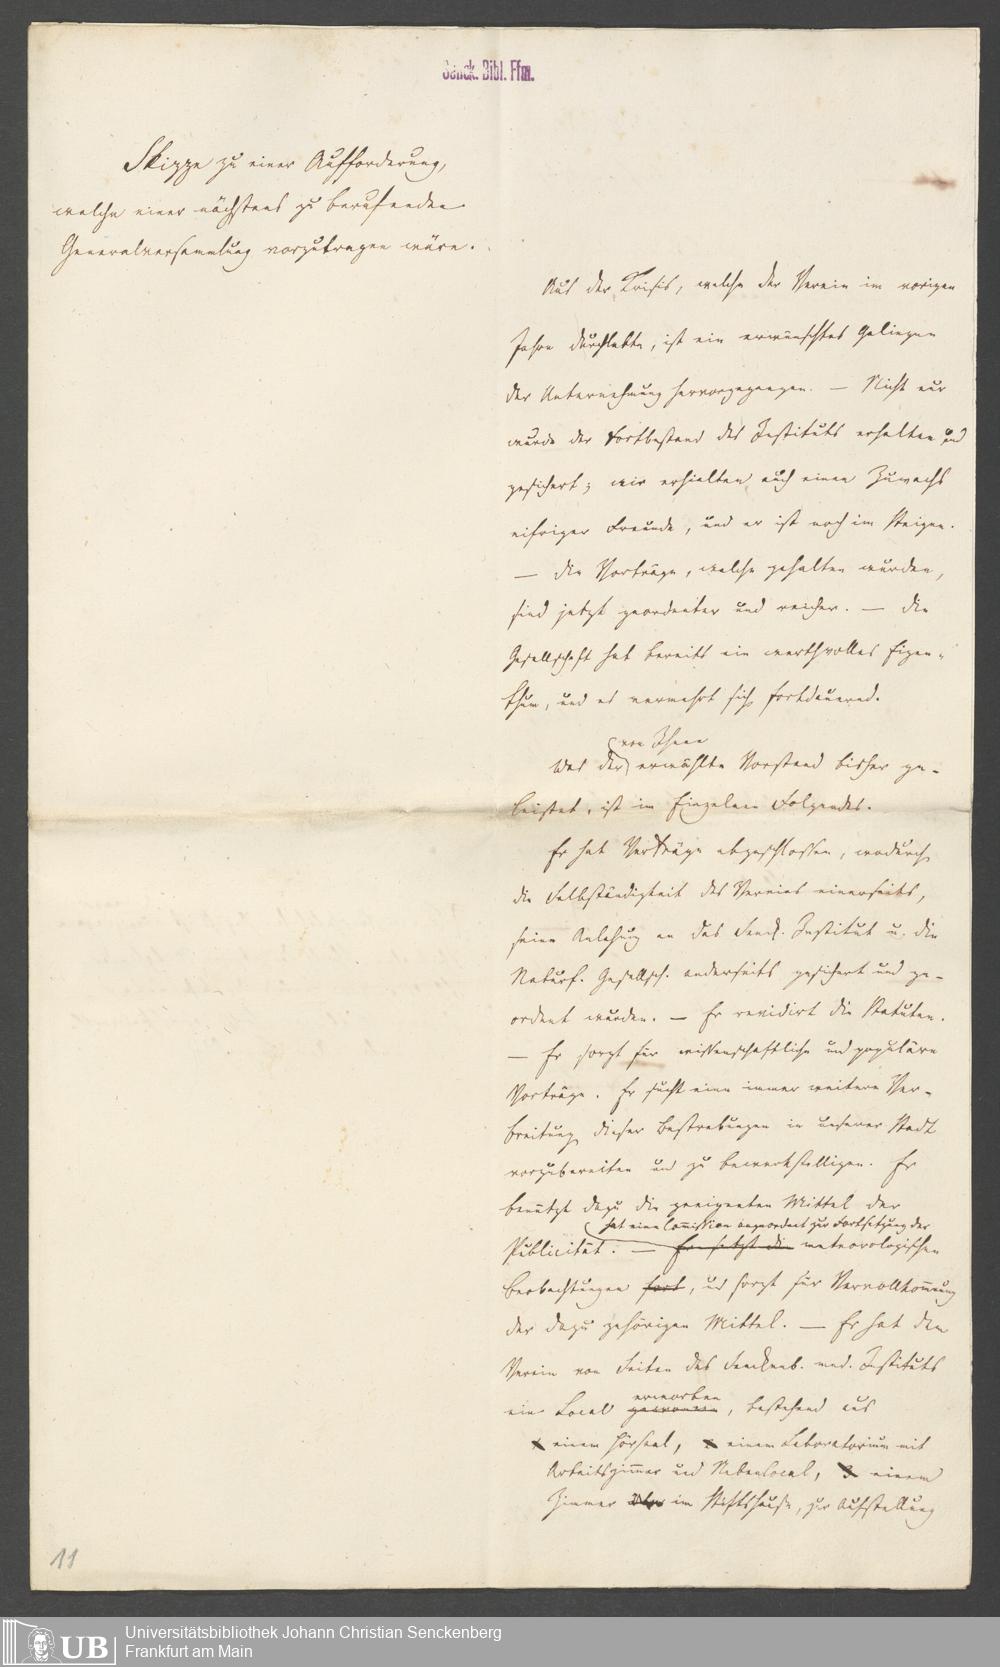 Senck. Bibl. Ffm.
Skizze zu einer Aufforderung,
welche einer nächstens zu berufenden
Generalversammlung vorzutragen wäre.
Aus der Krisis, welche der Verein im vorigen
Jahre durchlebte, ist ein erwünschtes Gelingen
der Unternehmung hervorgegangen. — Nicht nur
wurde der Fortbestand des Instituts erhalten und
gesichert; wir erhielten auch einen Zuwachs
eifriger Freunde, und er ist noch im Steigen.
— Die Vorträge, welche gehalten wurden,
sind jetzt geordneter und reicher. — Die
Gesellschaft hat bereits ein werthvolles Eigen-
thum, und es vermehrt sich fortdauernd.
von Ihnen
Was der erwählte Vorstand bisher ge-
leistet, ist im Einzelnen Folgendes.
Er hat Verträge abgeschlossen, wodurch
die Selbständigkeit des Vereins einerseits,
seine Anlehnung an das Senck. Institut u. die
Naturf. Gesellsch. anderseits gesichert und ge-
ordnet wurden. — Er revidirt die Statuten.
— Er sorgt für wissenschaftliche und populäre
Vorträge. Er sucht eine immer weitere Ver-
breitung dieser Bestrebungen in unserer Stadt
vorzubereiten und zu bewerkstelligen. Er
benützt dazu die geeigneten Mittel der
hat eine Commission angeordnet zur Fortsetzung der
Publicität. — Er setzt die meteorologischen
Beobachtungen fort, und sorgt für Vervollkommnung
der dazu gehörigen Mittel. — Er hat dem
Verein von Seiten des Senckenb. med. Instituts
erworben
ein Local gewonnen, bestehend aus
einem Hörsaal, einem Laboratorium mit
Arbeitszimmer und Nebenlocal, einem
Zimmer im Stiftshause, zur Aufstellung
11
UB
Universitätsbibliothek Johann Christian Senckenberg
Frankfurt am Main